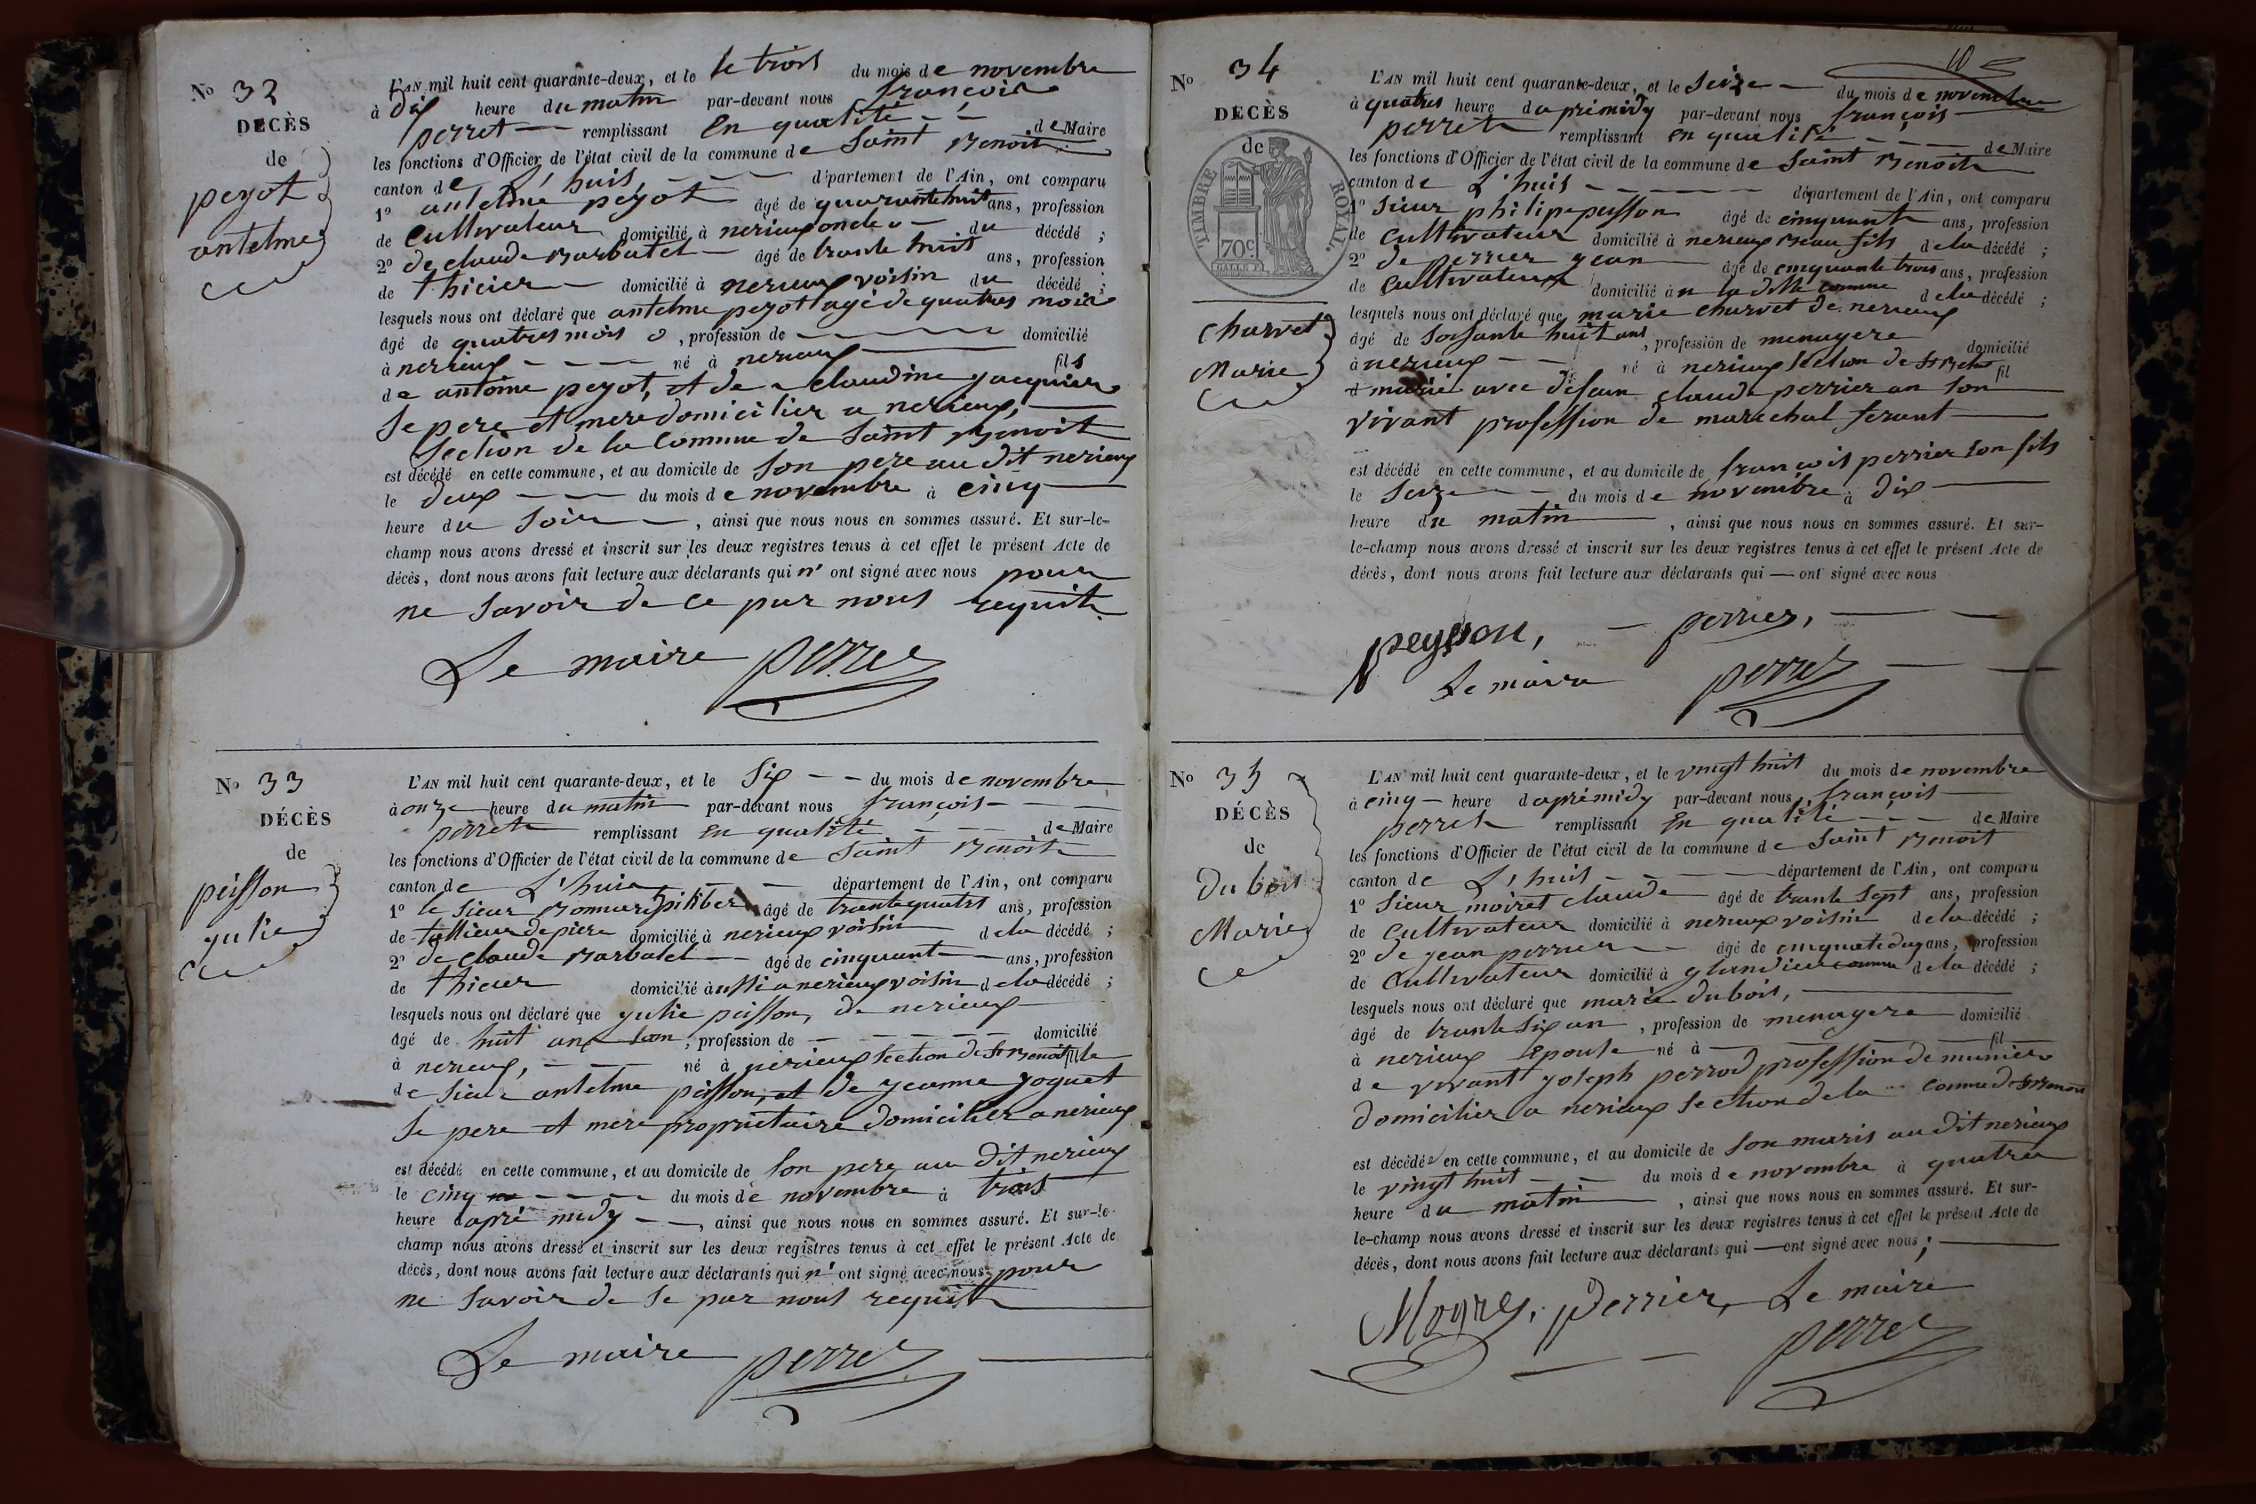 N° 32
DÉCÈS
de
peyot
antelme
L'AN mil huit cent quarante-deux, et le le trois du mois de novembre
à dix heure du matin par-devant nous françois
perret remplissant en qualité de Maire
les fonctions d'Officier de l'état civil de la commune de Saint Benoit
canton de L'huis département de l'Ain, ont comparu
1° antelme peyot âgé de quarantehuit ans, profession
de Cultivateur domicilié à nerieux oncle du décédé ;
2° de claude Barbatel âgé de trante huit ans, profession
de thicier domicilié à nerieux voisin du décédé ;
lesquels nous ont déclaré que antelme peyot agé de quatres mois
âgé de quatres mois , profession de domicilié
à nerieux né à nerieux fils
de antoine peyot, et de claudine jacquier
Se pere et mere domicilier a nerieux,
Section de la Commune de Saint Benoit
est décédé en cette commune, et au domicile de Son pere au dit nerieux
le deux du mois de novembre à cinq
heure du Soir , ainsi que nous nous en sommes assuré. Et sur-le-
champ nous avons dressé et inscrit sur les deux registres tenus à cet effet le présent Acte de
décès, dont nous avons fait lecture aux déclarants qui n' ont signé avec nous pour
ne Savoir de ce par nous requit
Le maire perret
N° 33
DÉCÈS
de
peisson
julie
L'AN mil huit cent quarante-deux, et le Six du mois de novembre
à onze heure du matin par-devant nous françois
perret remplissant en qualité de Maire
les fonctions d'Officier de l'état civil de la commune de Saint Benoit
canton de L'huis département de l'Ain, ont comparu
1° le Sieur Bonnard âgé de trantequatre ans, profession
de tallieur de piere domicilié à nerieux voisin de la décédé ;
2° de Claude Barbatel âgé de cinquant ans, profession
de thicier domicilié à ussi a nerieux voisin de la décédé ;
lesquels nous ont déclaré que julie peisson, de nerieux
âgé de huit an , profession de domicilié
à nerieux, né à nerieux Section de St Benoit fille
de Sieur antelme peisson, et de jeanne joguet
Se pere et mere proprietaire domicilier a nerieux
est décédé en cette commune, et au domicile de Son pere au dit nerieux
le cinq du mois de novembre à trois
heure d apré midy , ainsi que nous nous en sommes assuré. Et sur-le-
champ nous avons dressé et inscrit sur les deux registres tenus à cet effet le présent Acte de
décès, dont nous avons fait lecture aux déclarants qui n' ont signé avec nous pour
ne Savoir de Se par nous requit
Le maire perret
10
N° 34
DÉCÈS
de
TIMBRE ROYAL.
70 c.
Charvet
Marie
L'AN mil huit cent quarante-deux, et le Seize du mois de novembre
à quatres heure d aprémidy par-devant nous françois
perret remplissant en qualité de Maire
les fonctions d'Officier de l'état civil de la commune de Saint Benoit
canton de L'huis département de l'Ain, ont comparu
1° Sieur philipe peisson âgé de cinquant ans, profession
de Cultivateur domicilié à nerieux Beau fils de la décédé ;
2° de perrier jean âgé de cinquante trois ans, profession
de Cultivateur domicilié à commune de la décédé ;
lesquels nous ont déclaré que marie Charvet de nerieux
âgé de Soisante huit ans , profession de menagere domicilié
à nerieux né à nerieux Section de St Benoit fil
marié avec defaun claude perrier an Son
vivant profession de marechal ferant
est décédé en cette commune, et au domicile de françois perrier Son fils
le Seize du mois de novembre à dix
heure du matin , ainsi que nous nous en sommes assuré. Et sur-
le-champ nous avons dressé et inscrit sur les deux registres tenus à cet effet le présent Acte de
décès, dont nous avons fait lecture aux déclarants qui — ont signé avec nous
peysson, perrier,
Le maire perret
N° 35
DÉCÈS
de
Dubois
Marie
L'AN mil huit cent quarante-deux, et le vingt huit du mois de novembre
à cinq heure d aprémidy par-devant nous françois
perret remplissant en qualité de Maire
les fonctions d'Officier de l'état civil de la commune de Saint Benoit
canton de L'huis département de l'Ain, ont comparu
1° Sieur moiret claude âgé de trante Sept ans, profession
de Cultivateur domicilié à nerieux voisin de la décédé ;
2° de jean perrier âgé de cinquate dux ans, profession
de Cultivateur domicilié à glandieu commune de la décédé ;
lesquels nous ont déclaré que marie dubois,
âgé de trante Six an , profession de menagere domicilié
à nerieux Epouse né à fil
de vivant joseph perrod profession de munier
domicilier a nerieux Section de la comune de St Benoit
est décédé en cette commune, et au domicile de Son maris au dit nerieux
le vingt huit du mois de novembre à quatre
heure du matin , ainsi que nous nous en sommes assuré. Et sur-
le-champ nous avons dressé et inscrit sur les deux registres tenus à cet effet le présent Acte de
décès, dont nous avons fait lecture aux déclarants qui — ont signé avec nous ;
perrier, Le maire
perret